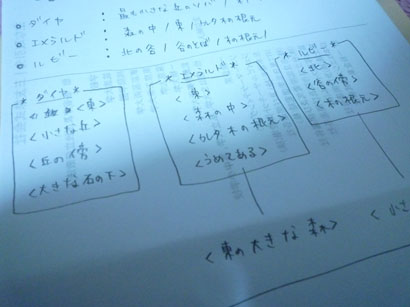 ダイヤ : 最も小さな丘の
エメラルド : 森の中 / 東 / 木の根元
ルビー : 北の谷 / 谷のそば / 木の根元
*ダイヤ*
<東>
<小さな丘>
<丘の傍>
<大きな石の下>
*エメラルド*
<東>
<森の中>
<木の根元>
<うめてある>
*ルビー*
<北>
<谷の傍>
<木の根元>
<東の大きな森>
<小さ